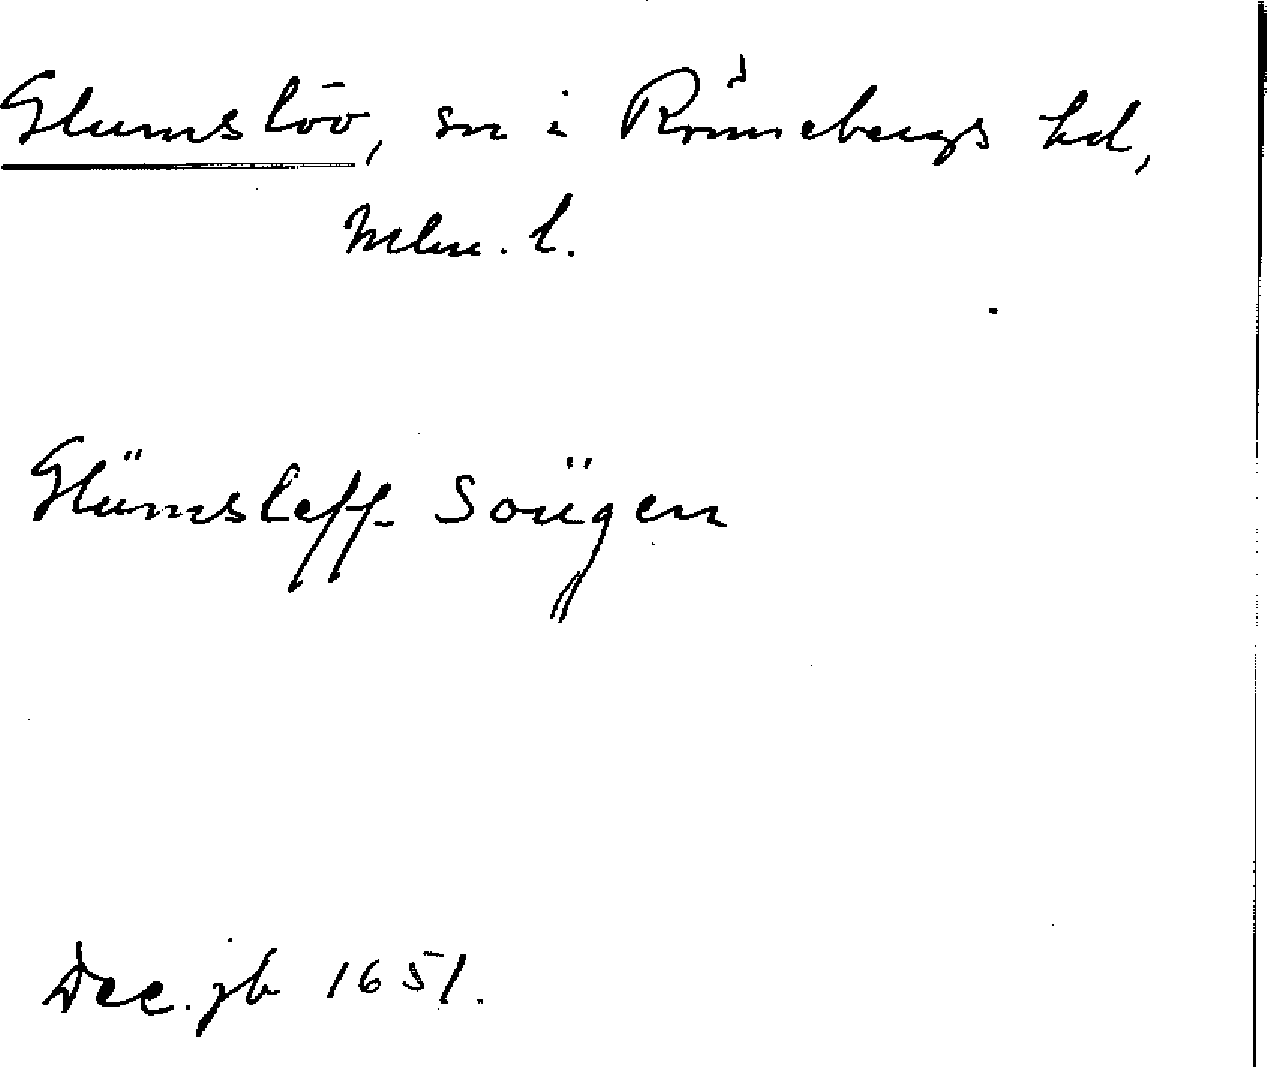 Glumslöv, sn i Rönnebergs hd,
Mlm. l.
Glümsleff Soügen
Dec. jb 1651.